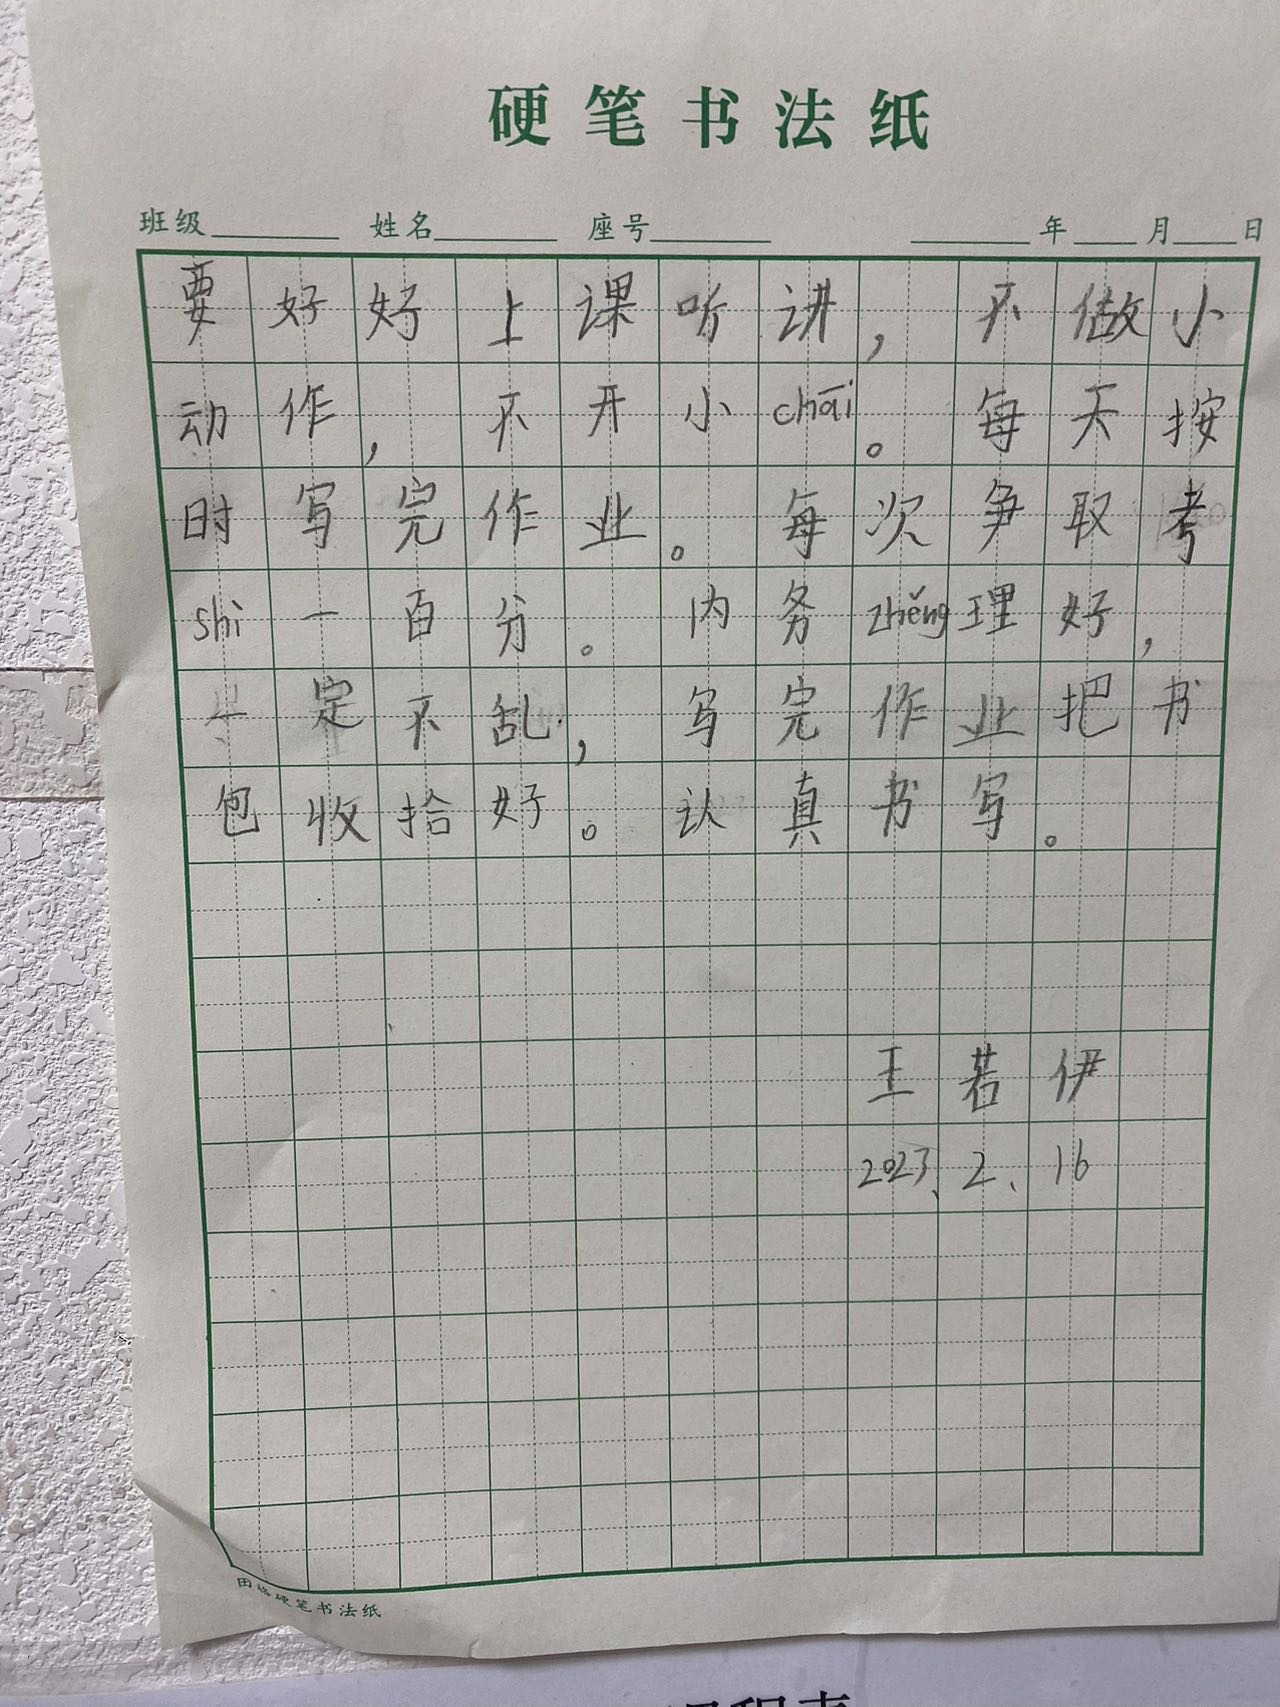 硬笔书法纸
班级 姓名 座号 年 月 日
要好好上课听讲，不做小
动作，不开小chāi。每天按
时写完作业。每次争取考
shì一百分。内务zhěng理好，
一定不乱，写完作业把书
包收拾好。认真书写。
王若伊
2023、2、16
田格硬笔书法纸
课程表